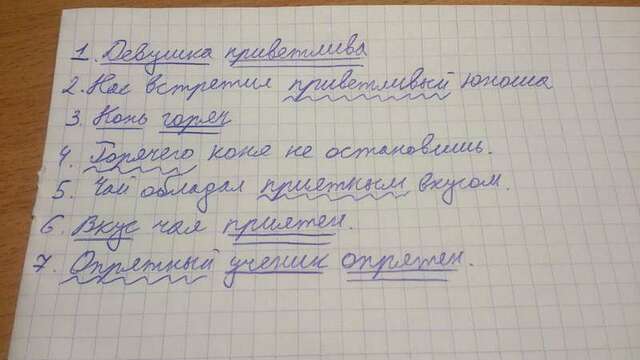 1. Девушка приветлива
2. Нас встретил приветливый юноша
3. Конь горяч
4. Горячего коня не остановишь.
5. Чай обладал приятным вкусом.
6. Вкус чая приятен.
7. Опрятный ученик опрятен.